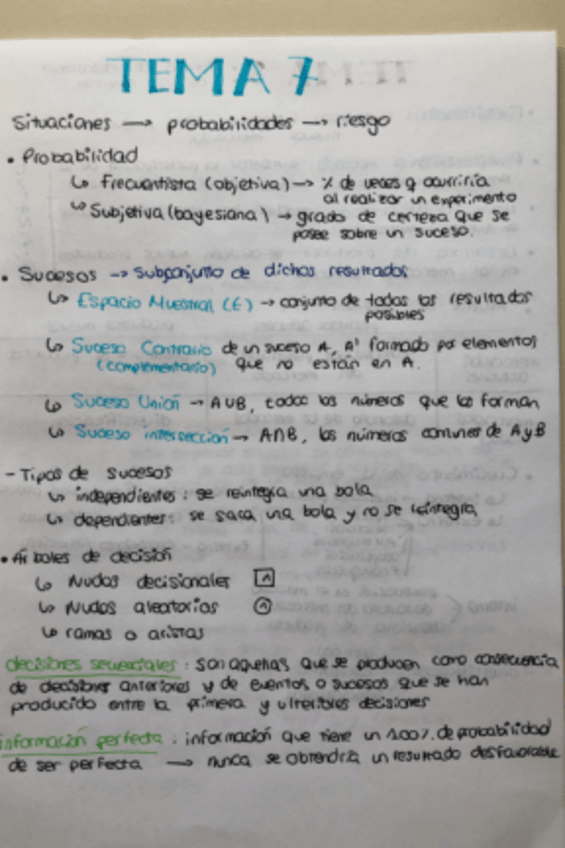 TEMA 7
Situaciones → probabilidades → riesgo
• Probabilidad
↳ Frecuentista (objetiva) → % de veces q ocurriría
al realizar un experimento
↳ Subjetiva (bayesiana) → grado de certeza que se
posee sobre un suceso.
• Sucesos → Subconjunto de dichos resultados
↳ Espacio Muestral (E) → conjunto de todos los resultados
posibles
↳ Suceso Contrario de un suceso A, A' formado por elementos
(complementario) que no están en A.
↳ Suceso Unión → A∪B, todos los números que los forman
↳ Suceso intersección → A∩B, los números comunes de A y B
- Tipos de sucesos
↳ independientes: se reintegra una bola
↳ dependientes: se saca una bola y no se reintegra
• Árboles de decisión
↳ Nudos decisionales 1
↳ Nudos aleatorios 1
↳ ramas o aristas
decisiones secuenciales: son aquellas que se producen como consecuencia
de decisiones anteriores y de eventos o sucesos que se han
producido entre la primera y ulteriores decisiones
información perfecta: información que tiene un 100% de probabilidad
de ser perfecta → nunca se obtendría un resultado desfavorable